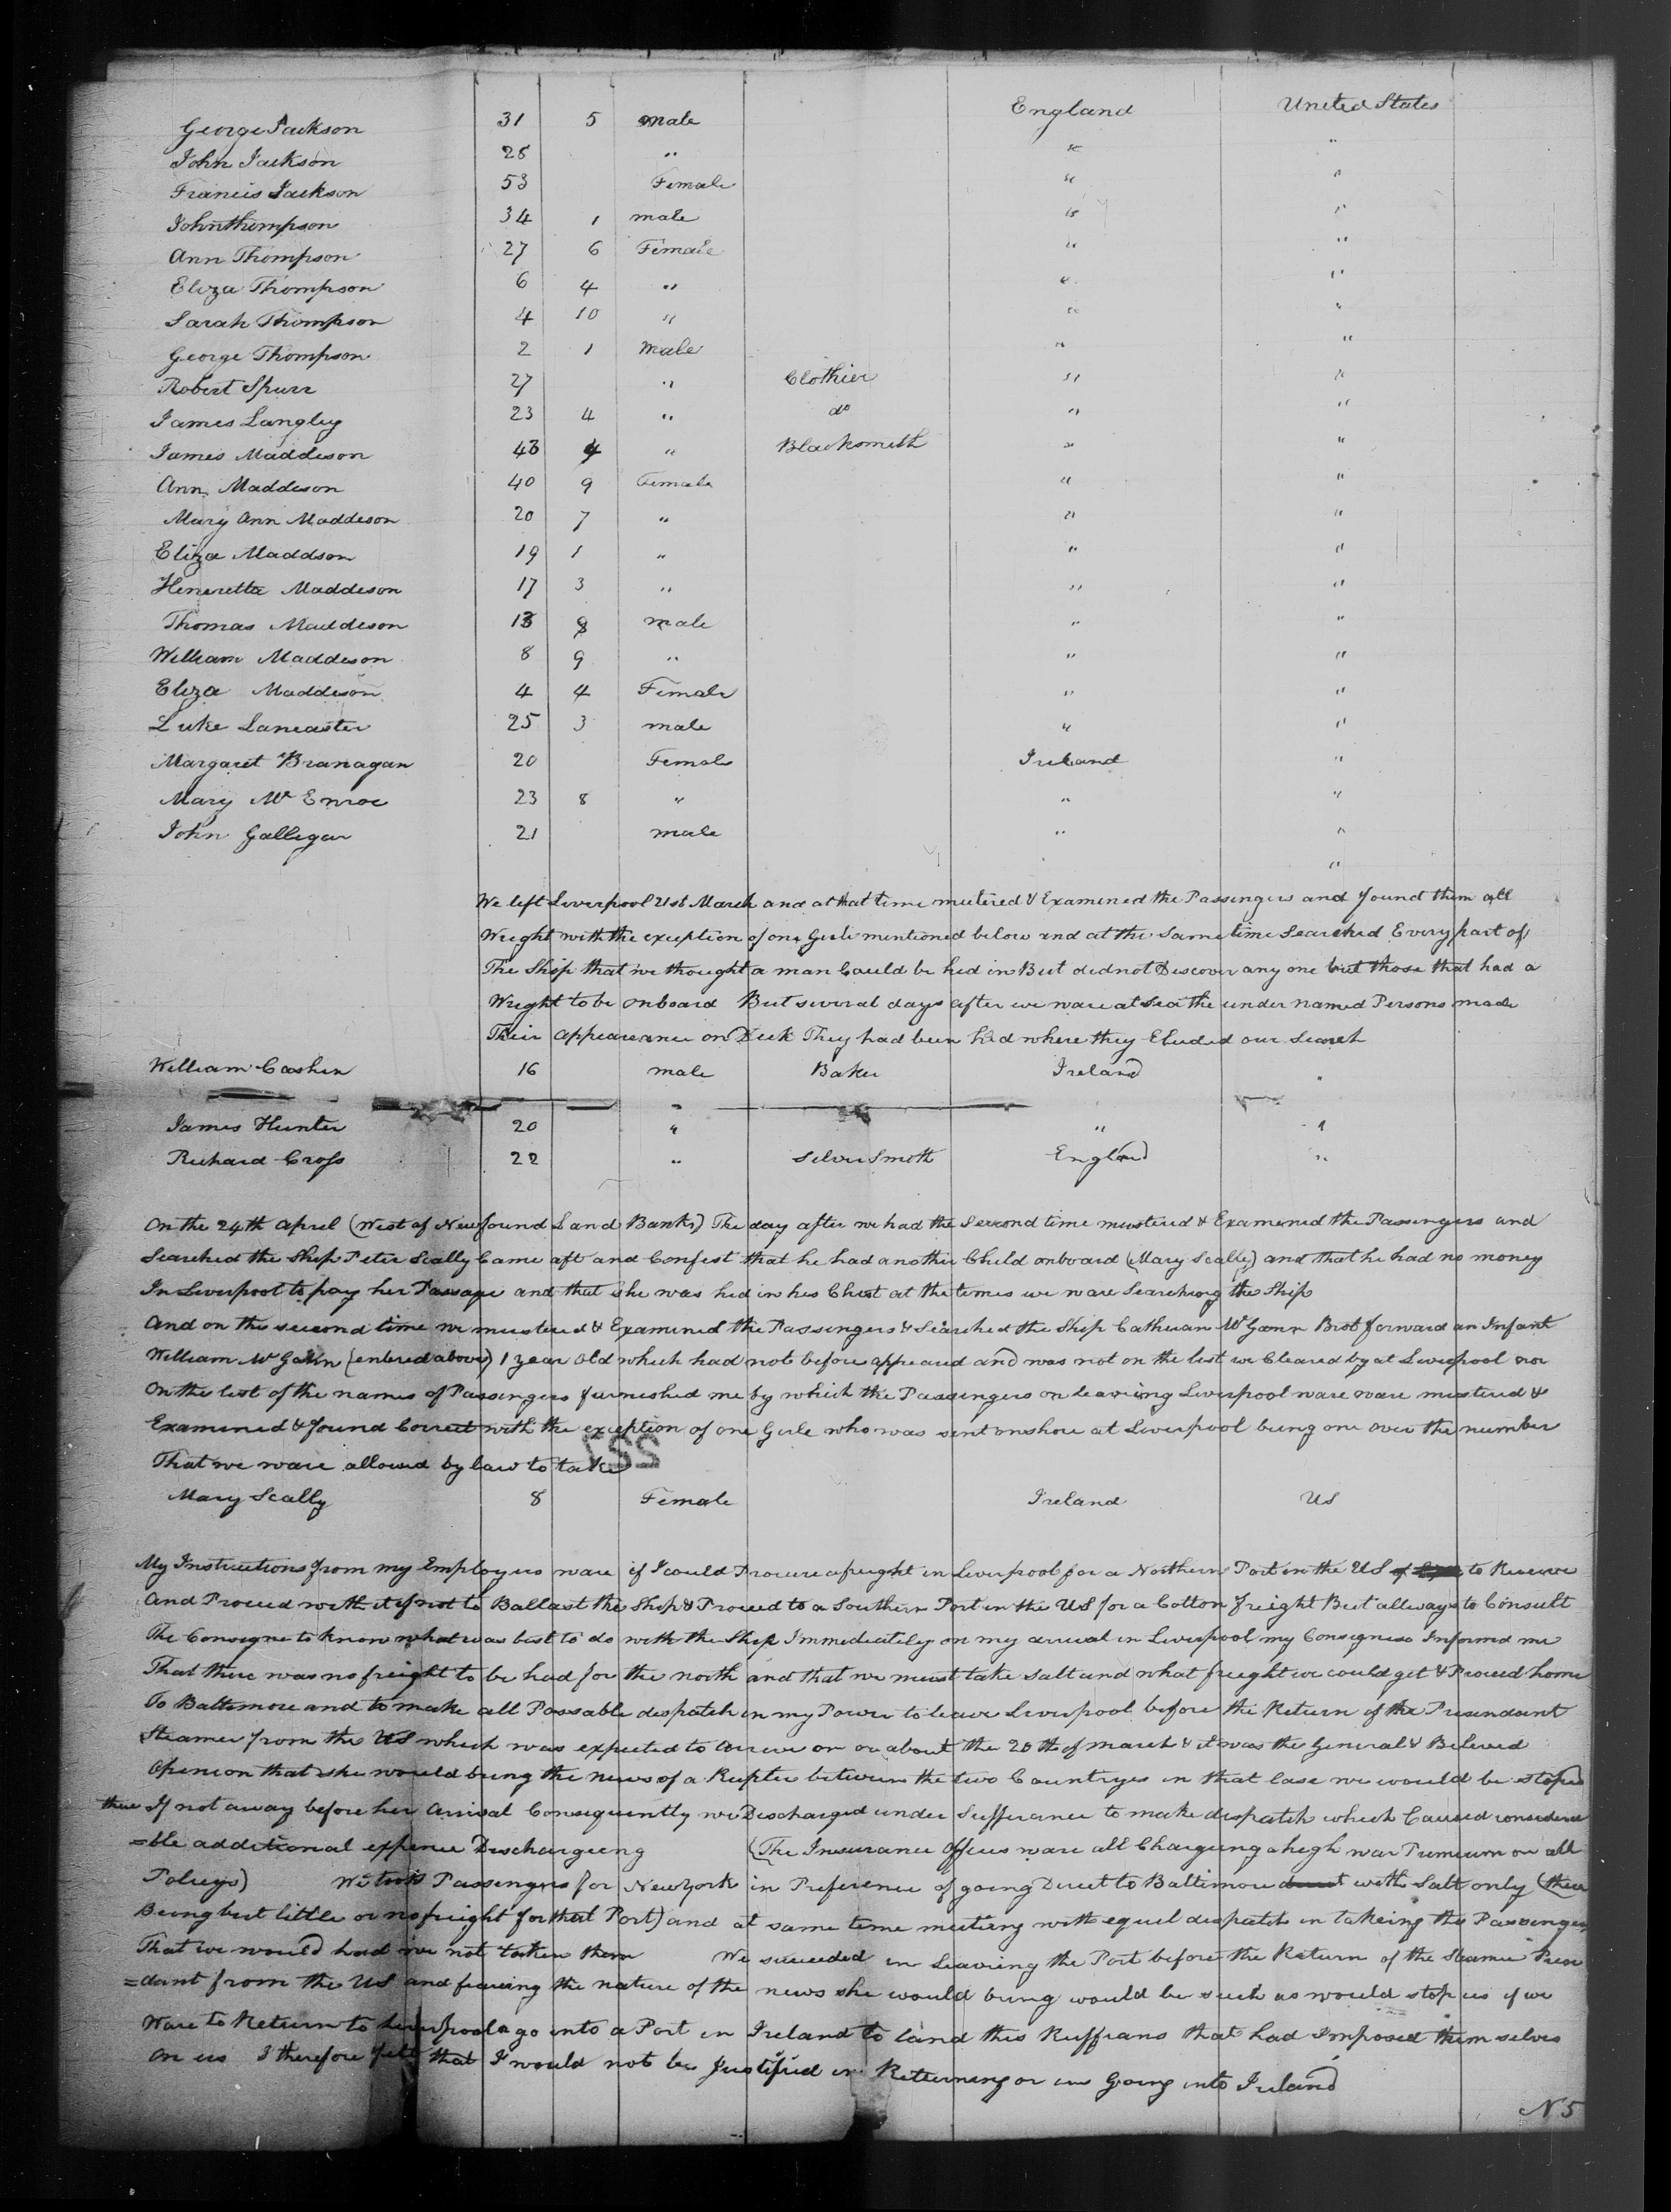 George Jackson 31 5 male England United States
John Jackson 28 " " "
Francis Jackson 53 Female " "
John thompson 34 1 male " "
Ann Thompson 27 6 Female " "
Eliza Thompson 6 4 " " "
Sarah Thompson 4 10 " " "
George Thompson 2 1 Male " "
Robert Spurr 27 " Clothier " "
James Langley 23 4 " do " "
James Maddeson 43 4 " Blacksmith " "
Ann Maddeson 40 9 Female " "
Mary Ann Maddeson 20 7 " " "
Eliza Maddson 19 1 " " "
Heneretta Maddeson 17 3 " " "
Thomas Maddeson 13 8 male " "
William Maddeson 8 9 " " "
Eliza Maddeson 4 4 Female " "
Luke Lancaster 25 3 male " "
Margaret Branagan 20 Female Ireland "
Mary Mc Enroe 23 8 " " "
John Galligan 21 male " "
"
We left Liverpool 21st March and at that time mustered & Examined the Passengers and found them all
Wright with the exception of one Girle mentioned below and at the same time Searched Every part of
The Ship that we thought a man Could be hid in But did not Discover any one but those that had a
Wright to be onboard But several days after we ware at Sea the under named Persons made
Their appearence on Deck They had been hid where they Eluded our Search
William Cashin 16 male Baker Ireland "
James Hunter 20 " " "
Richard Cross 22 " Silver Smith England "
On the 24th April (West of Newfound Land Banks) The day after we had the second time mustered & Examened the Passengers and
Searched the Ship Peter Scally Came aft and Confest that he had another Child onboard (Mary Scally) and that he had no money
In Liverpool to pay her Passage and that she was hid in his Chest at the times we ware Searching the Ship
And on the second time we mustered & Examined the Passengers & Searched the Ship Catheran McGann Brot forward an Infant
William McGann (entered above) 1 year old which had not before appeared and was not on the list we Cleared by at Liverpool nor
On the list of the names of Passengers furneshed me by which the Passengers on leaveing Liverpool ware ware mustered &
Examined & found Correct with the exception of one Girle who was sent onshore at Liverpool being one over the number
That we ware allowed by law to take
Mary Scally 8 Female Ireland US
My Instructions from my Employers ware if I could Procure a freight in Liverpool for a Northern Port in the US to Receive
And Proceed with it if not to Ballast the Ship & Proceed to a Southern Port in the US for a Cotton freight But allways to Consult
The Consigne to know what was best to do with the Ship Immediately on my arrival in Liverpool my Consignees Informed me
That there was no freight to be had for the north and that we must take salt and what freight we could get & Proceed home
To Baltimore and to make all Possable despatch in my Power to leave Liverpool before the Return of the Presendant
Steamer from the US which was expected to arrive on or about the 20th of march & it was the General & Beleved
Openion that she would bring the news of a Rupter between the two Countryes in that Case we would be stoped
there If not away before her Arrival Consequently we Discharged under Sufferance to make dispatch which Caused considera
=ble additional expence Dischargeing (The Insurance Offices ware all Chargeing a high war Premium on all
Poleys) We took Passengers for New York in Preference of going Direct to Baltimore with Salt only (their
Being but little or no freight for that Port) and at same time meeting with equel despatch in takeing the Passengers
That we would had we not taken them We succeeded in Leaveing the Port before the Return of the Steamer Prese
=dant from the US and fearing the nature of the news she would bring would be such as would stop us if we
Ware to Return to Liverpool or go into a Port in Ireland to land this Ruffians that had Imposed them selves
On us I therefore felt that I would not be Justified in Returning or in Going into Ireland
N 5